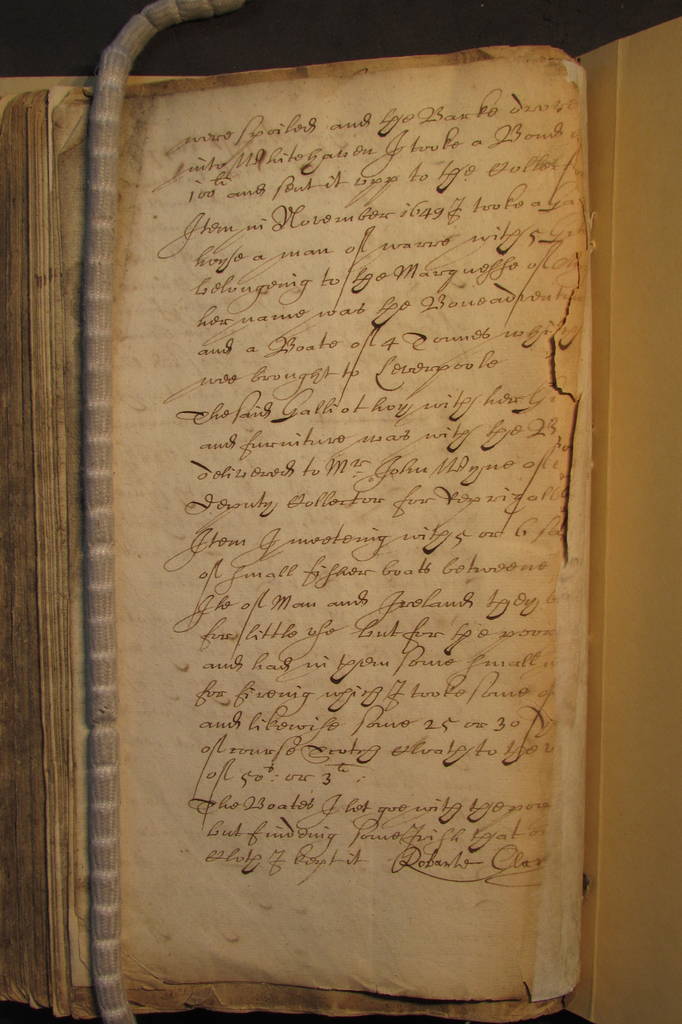 were spoiled and the Barke drove
into Whitehaven I tooke a Bond
100li and sent it upp to the Collect
Item in November 1649 I tooke a
hoye a man of warre with 5
belongeing to the Marquesse of
her name was the Boneadventu
and a Boate of 4 Tonnes which
wee brought to Leverpoole
The said Galliot hoy with her
and furniture was with the B
delivered to Mr. John Wyne
deputy Collector for reprizall
Item I meeteing with 5 or 6
of small fisher boats betweene
Ile of Man and Ireland they
for little use but for the poore
and had in them some small
for fireing which I tooke some
and likewise some 25 or 30
of course Scotch Cloath to the
of 50s: or 3li:
The Boates I let goe with the poore
but findeing some Irish that
Cloth I kept it Robarte Clar